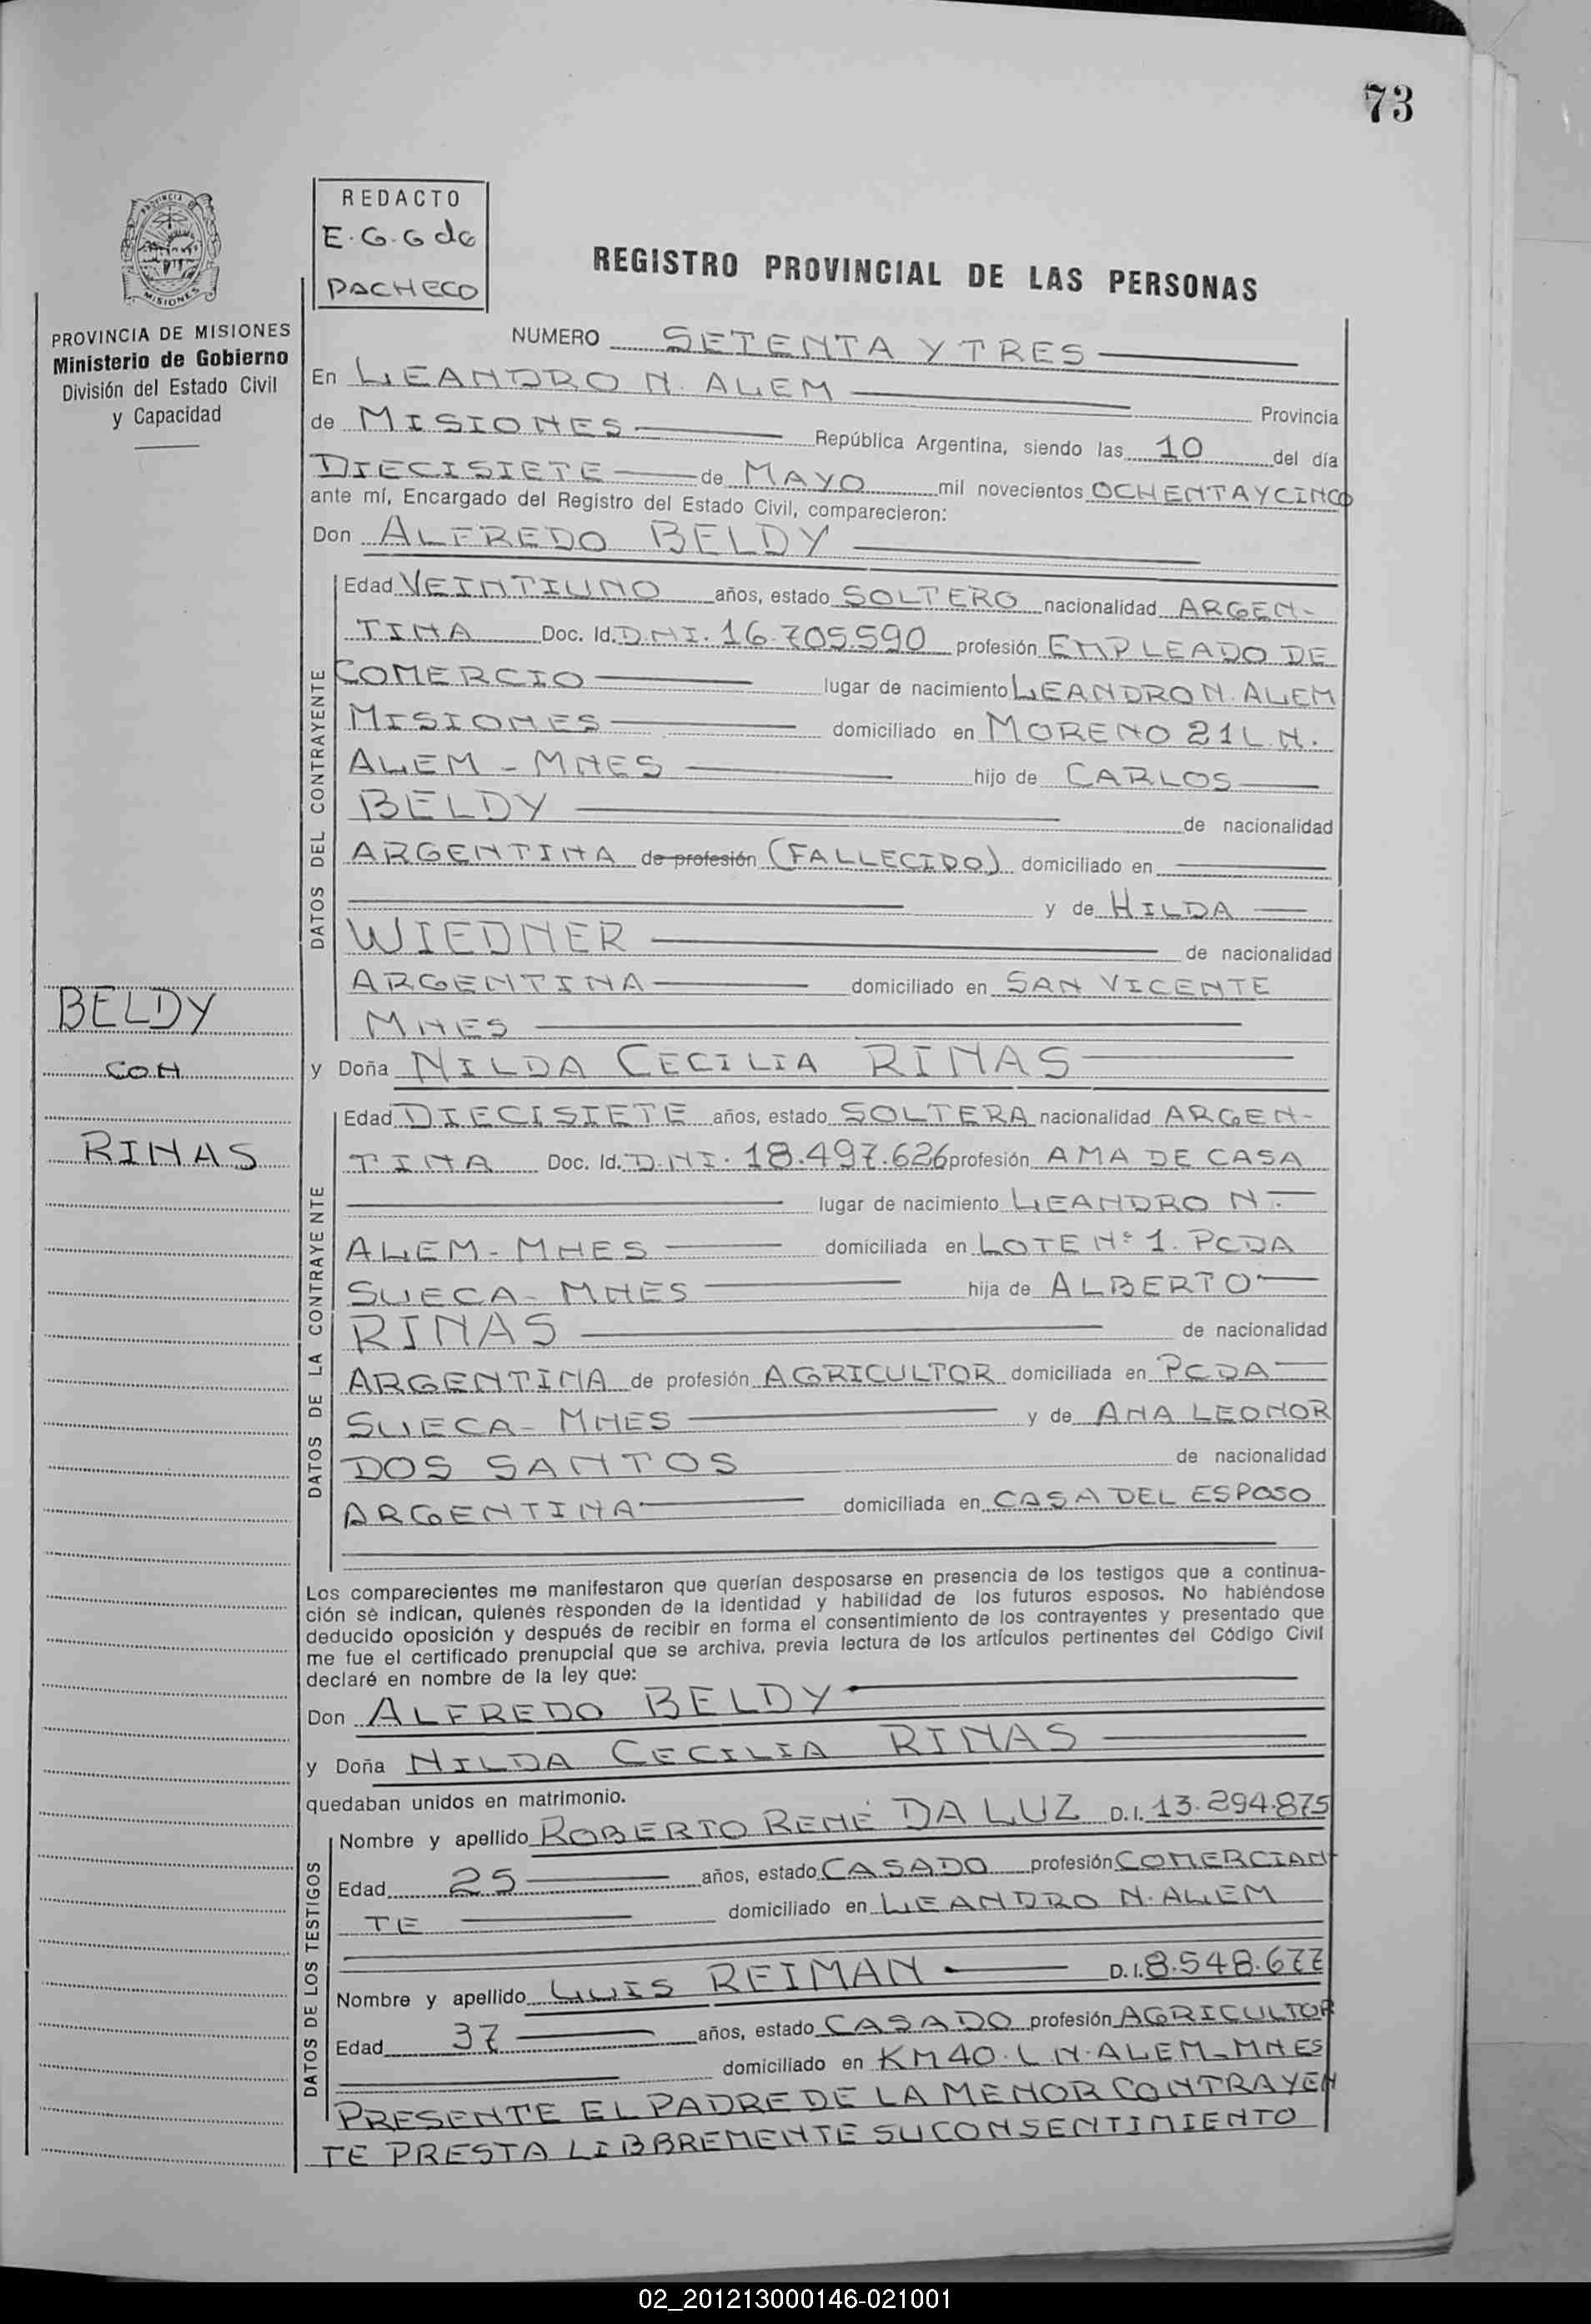 73
REDACTO
E.G.G de
PACHECO
PROVINCIA DE MISIONES
MISIONES
REGISTRO PROVINCIAL DE LAS PERSONAS
PROVINCIA DE MISIONES
Ministerio de Gobierno
División del Estado Civil
y Capacidad
NUMERO SETENTA Y TRES
En LEANDRO N. ALEM Provincia
de MISIONES República Argentina, siendo las 10 del día
DIECISIETE de MAYO mil novecientos OCHENTAYCINCO
ante mí, Encargado del Registro del Estado Civil, comparecieron:
Don ALFREDO BELDY
DATOS DEL CONTRAYENTE
Edad VEINTIUNO años, estado SOLTERO nacionalidad ARGEN-
TINA Doc. Id. D.N.I. 16.705.590 profesión EMPLEADO DE
COMERCIO lugar de nacimiento LEANDRO N. ALEM
MISIONES domiciliado en MORENO 21 L.N.
ALEM - MNES hijo de CARLOS
BELDY de nacionalidad
ARGENTINA de profesión (FALLECIDO) domiciliado en
y de HILDA
WIEDNER de nacionalidad
ARGENTINA domiciliado en SAN VICENTE
MNES
BELDY
CON
RINAS
y Doña NILDA CECILIA RINAS
DATOS DE LA CONTRAYENTE
Edad DIECISIETE años, estado SOLTERA nacionalidad ARGEN-
TINA Doc. Id. D.N.I. 18.497.626 profesión AMA DE CASA
lugar de nacimiento LEANDRO N.
ALEM - MNES domiciliada en LOTE Nº 1. PCDA
SUECA - MNES hija de ALBERTO
RINAS de nacionalidad
ARGENTINA de profesión AGRICULTOR domiciliada en PCDA
SUECA - MNES y de ANA LEONOR
DOS SANTOS de nacionalidad
ARGENTINA domiciliada en CASA DEL ESPOSO
Los comparecientes me manifestaron que querían desposarse en presencia de los testigos que a continua-
ción se indican, quienes responden de la identidad y habilidad de los futuros esposos. No habiéndose
deducido oposición y después de recibir en forma el consentimiento de los contrayentes y presentado que
me fue el certificado prenupcial que se archiva, previa lectura de los artículos pertinentes del Código Civil
declaré en nombre de la ley que:
Don ALFREDO BELDY
y Doña NILDA CECILIA RINAS
quedaban unidos en matrimonio.
DATOS DE LOS TESTIGOS
Nombre y apellido ROBERTO RENÉ DA LUZ D.I. 13.294.875
Edad 25 años, estado CASADO profesión COMERCIAN
TE domiciliado en LEANDRO N. ALEM
Nombre y apellido LUIS REIMAN D.I. 8.548.677
Edad 37 años, estado CASADO profesión AGRICULTOR
domiciliado en KM 40. L N. ALEM - MNES
PRESENTE EL PADRE DE LA MENOR CONTRAYEN
TE PRESTA LIBBREMENTE SU CONSENTIMIENTO
02_201213000146-021001